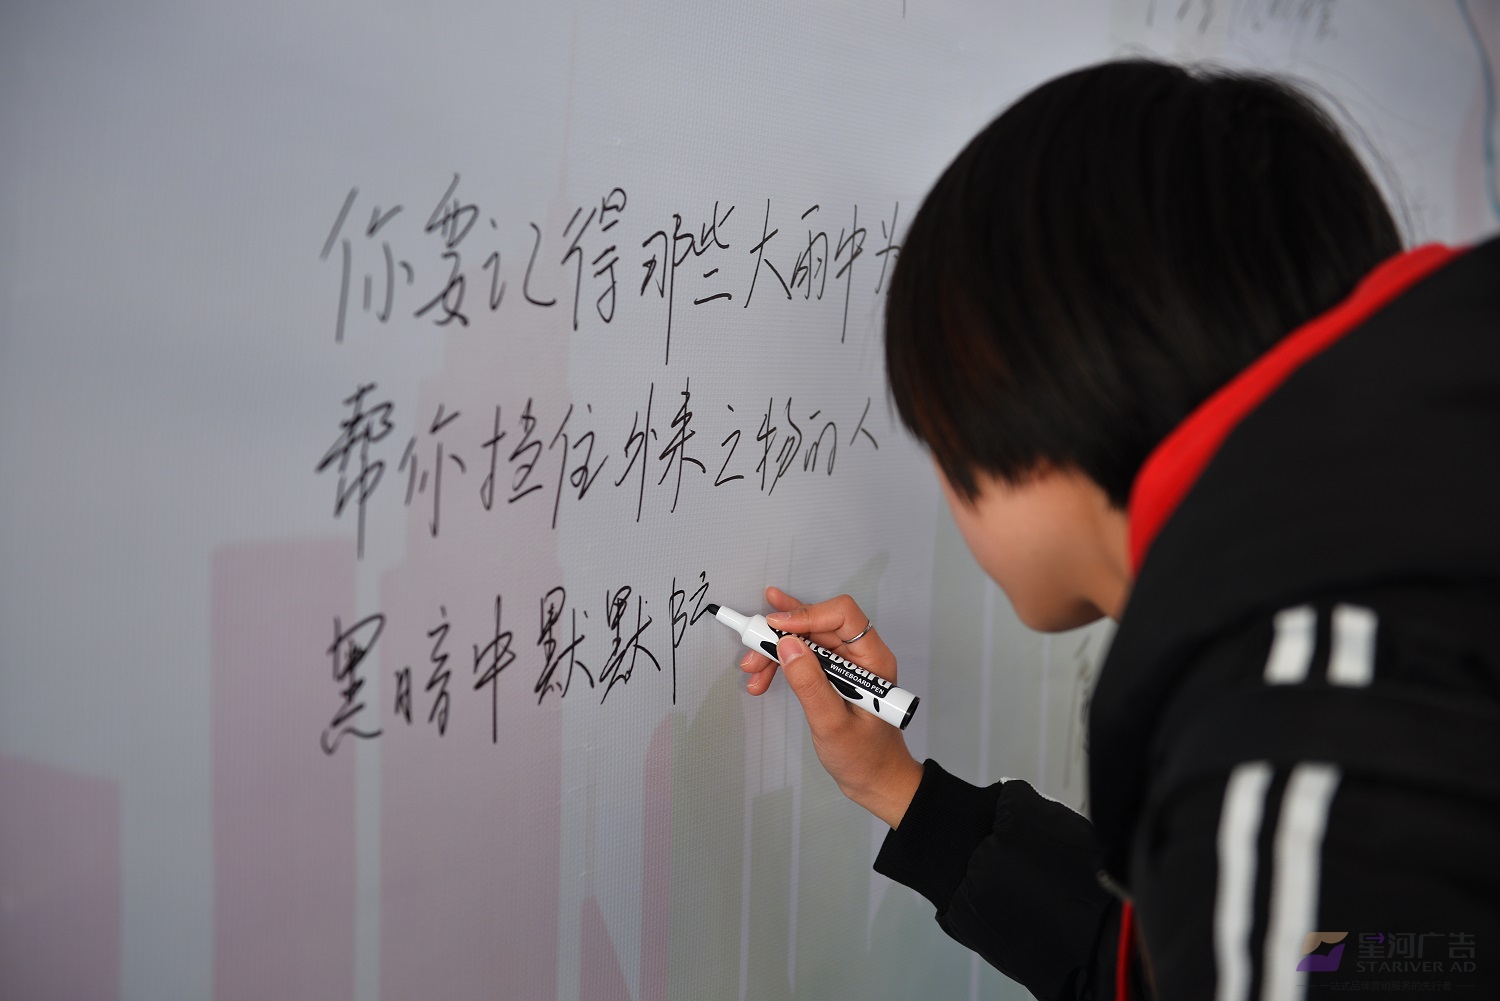 你要记得那些大雨中为
帮你挡住外来之物的人
黑暗中默默
WHITEBOARD PEN
星河广告
STARIVER AD